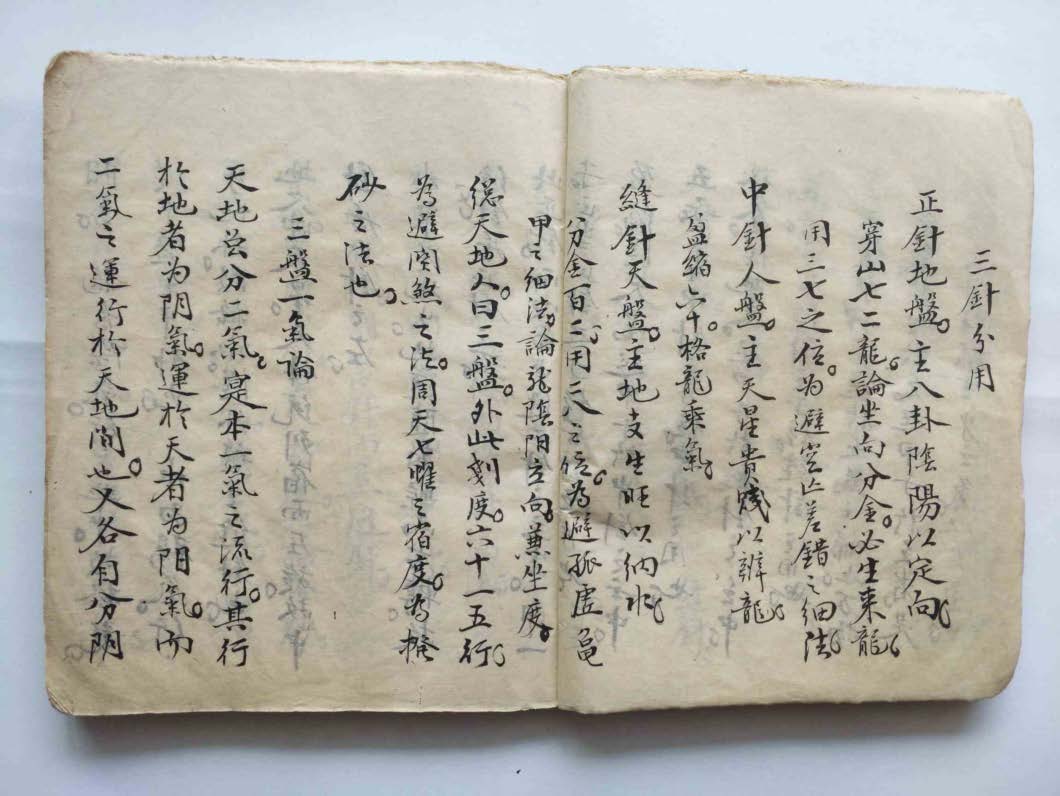 三針分用
正針地盤。主八卦陰陽以定向。
穿山七二龍。論坐向分金。必生來龍。
用三七之位。为避空亡差錯之细法。
中針人盤。主天星貴賤以辨龍。
盈縮六十。格龍乘氣。
縫針天盤。主地支生旺以納水。
分金百二。用二八之位。為避孤虛龟
甲之细法。論龙陰阳立向。兼坐度。
總天地人曰三盤。外此刻度。六十一五行。
為避関煞之法。周天七曜之宿度。為撥
砂之法也。
三盤一氣論
天地总分二氣。寔本一氣之流行。其行
於地者为阴氣。運於天者为阳氣。而
二氣之運行於天地间也。又各自分阴